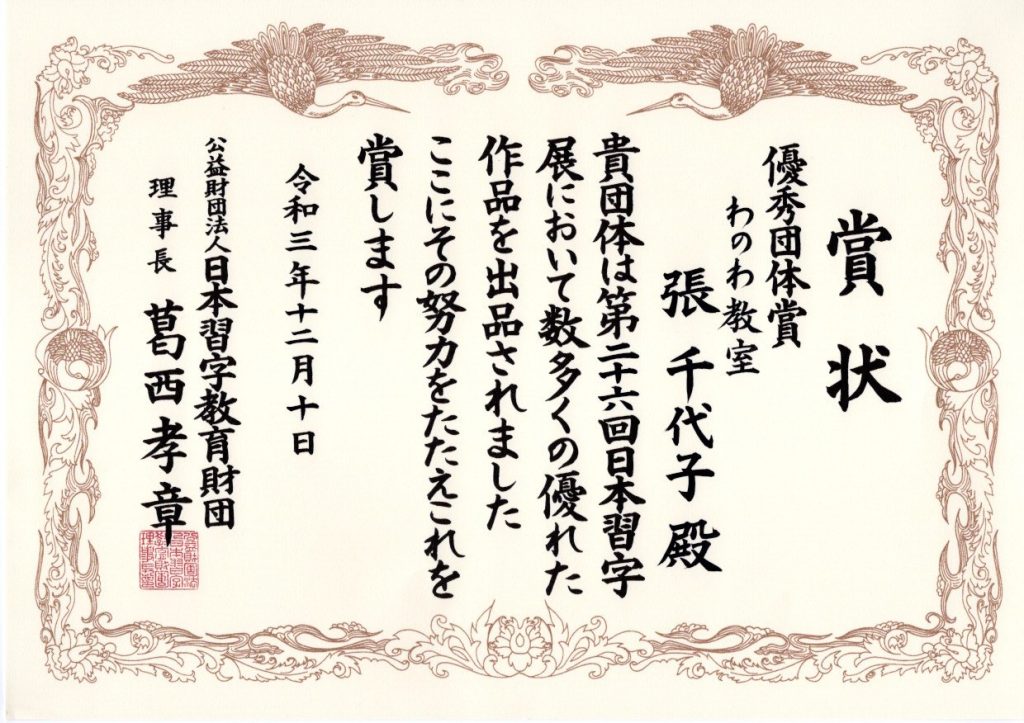 賞状
優秀団体賞
わのわ教室
張千代子殿
貴団体は第二十六回日本習字
展において数多くの優れた
作品を出品されました
ここにその努力をたたえこれを
賞します
令和三年十二月十日
公益財団法人日本習字教育財団
理事長 葛西孝章